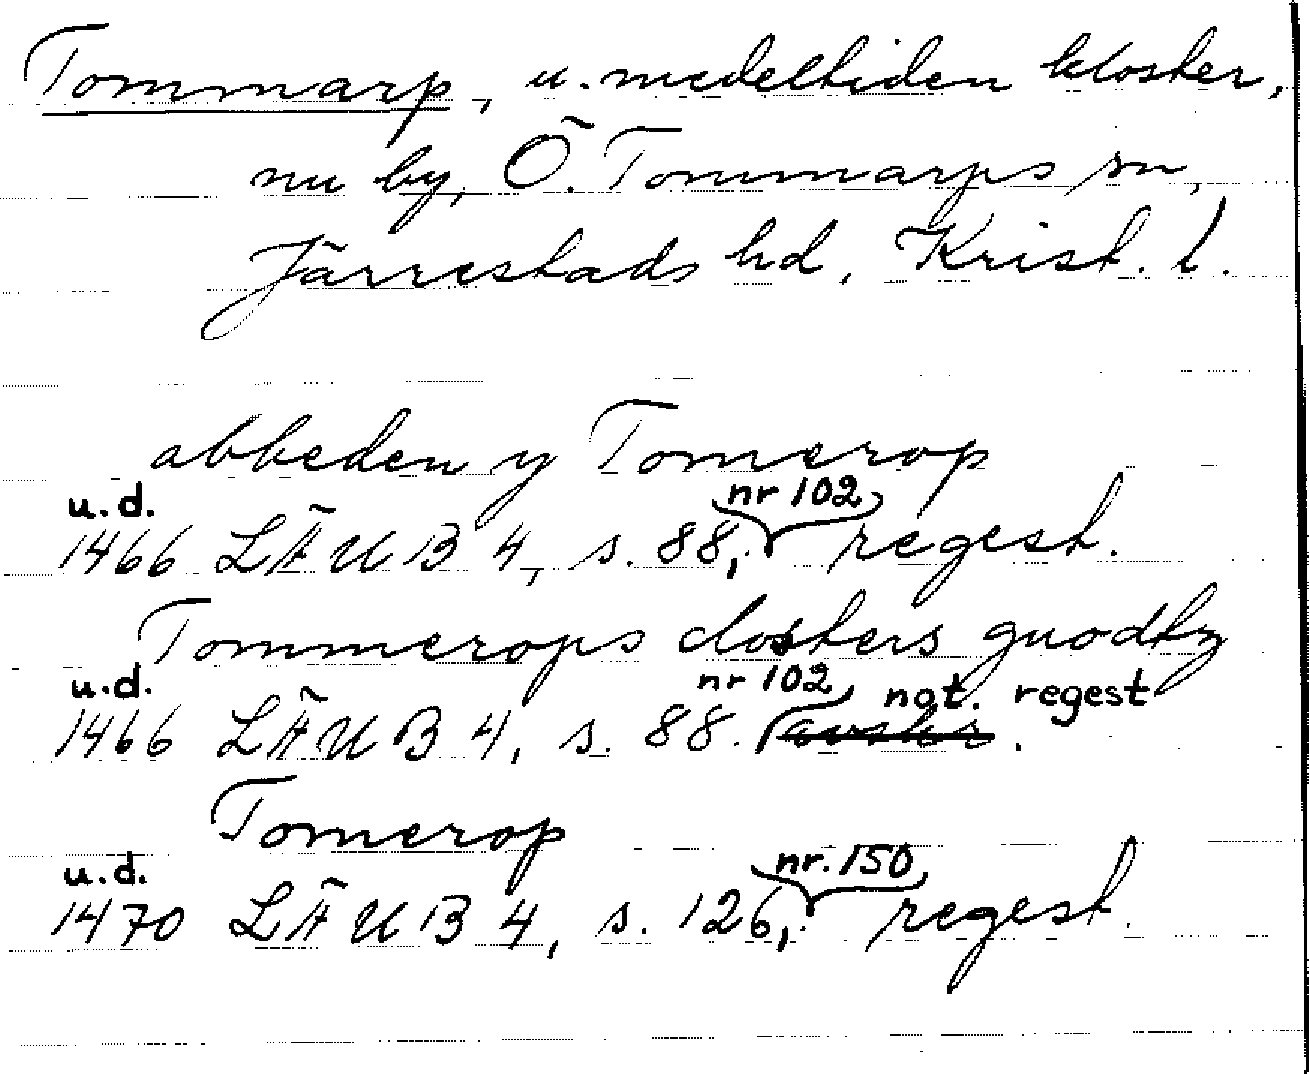 Tommarp, u. medeltiden kloster,
nu by, Ö. Tommarps sn,
Järrestads hd, Krist. l.
abbeden y Tomerop
u.d. nr 102
1466 LÄUB 4, s. 88, regest.
Tommerops closters guodtz
u.d. nr 102 not. regest
1466 LÄUB 4, s. 88. avskr.
Tomerop
u.d. nr. 150
1470 LÄUB 4, s. 126, regest.